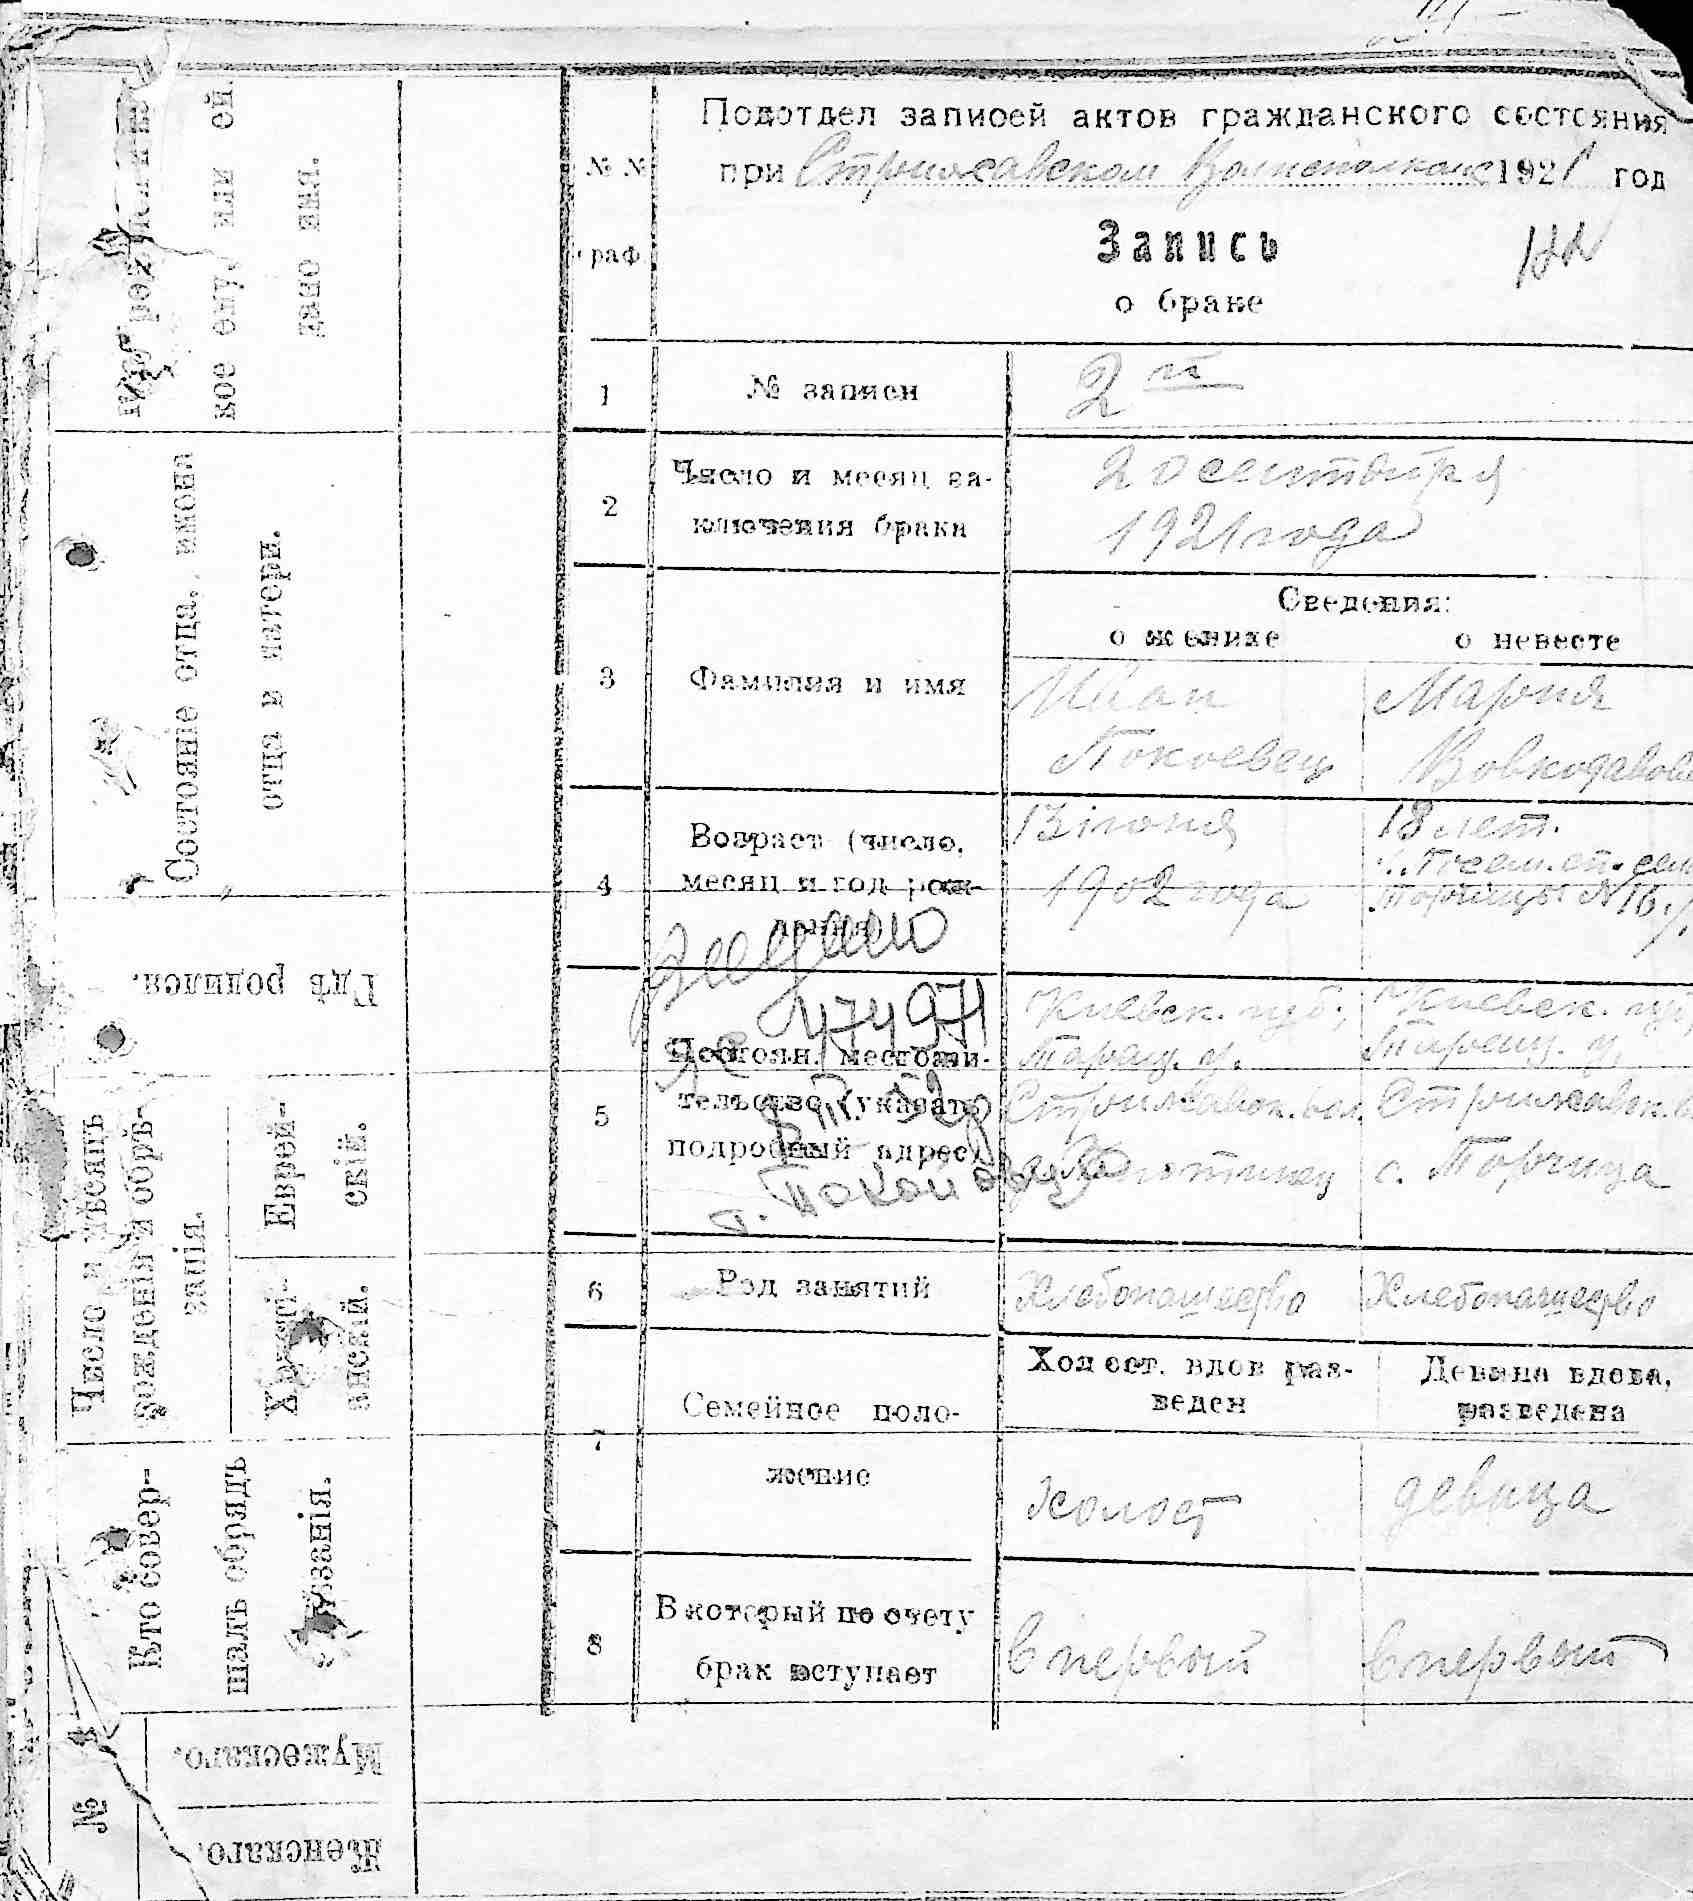 Подотдел записей актов гражданского состояния
при Стрижавском Волисполкоме 1921 год
№ №
граф
Запись
о браке
1 № записи 2й
2 Число и месяц за-
ключения брака
20 сентября
1921 года
Сведения:
о женихе о невесте
3 Фамилия и имя
Иван
Покоевец
Мария
Вовкодавова
4 Возраст (число,
месяц и год рож-
дения
13 іюня
1902 года
18 лет.
Торчицы № 16
Видано
474971
5 Постоян. местожи-
тельство (указать
подробный адрес)
Киевск. губ.,
Таращ. у.
Стрижавск. вол.
Киевск. губ,
Таращ. у,
Стрижавск. в
с. Торчица
6 Род занятий
Хлебопашество Хлебопашество
7 Семейное поло-
жение
Холост. вдов раз-
веден
Девица вдова,
разведена
холост девица
8 В который по счету
брак вступает
в первый в первый
кое ему, или ей,
дано имя.
Состояніе отца, имена
отца и матери.
Гдѣ родился.
Число и мѣсяцъ
рожденія и обрѣ-
занія.
Еврей-
скій.
Христі-
анскій.
Кто совер-
шалъ обрядъ
обрѣзанія.
№
Мужескаго.
Женскаго.